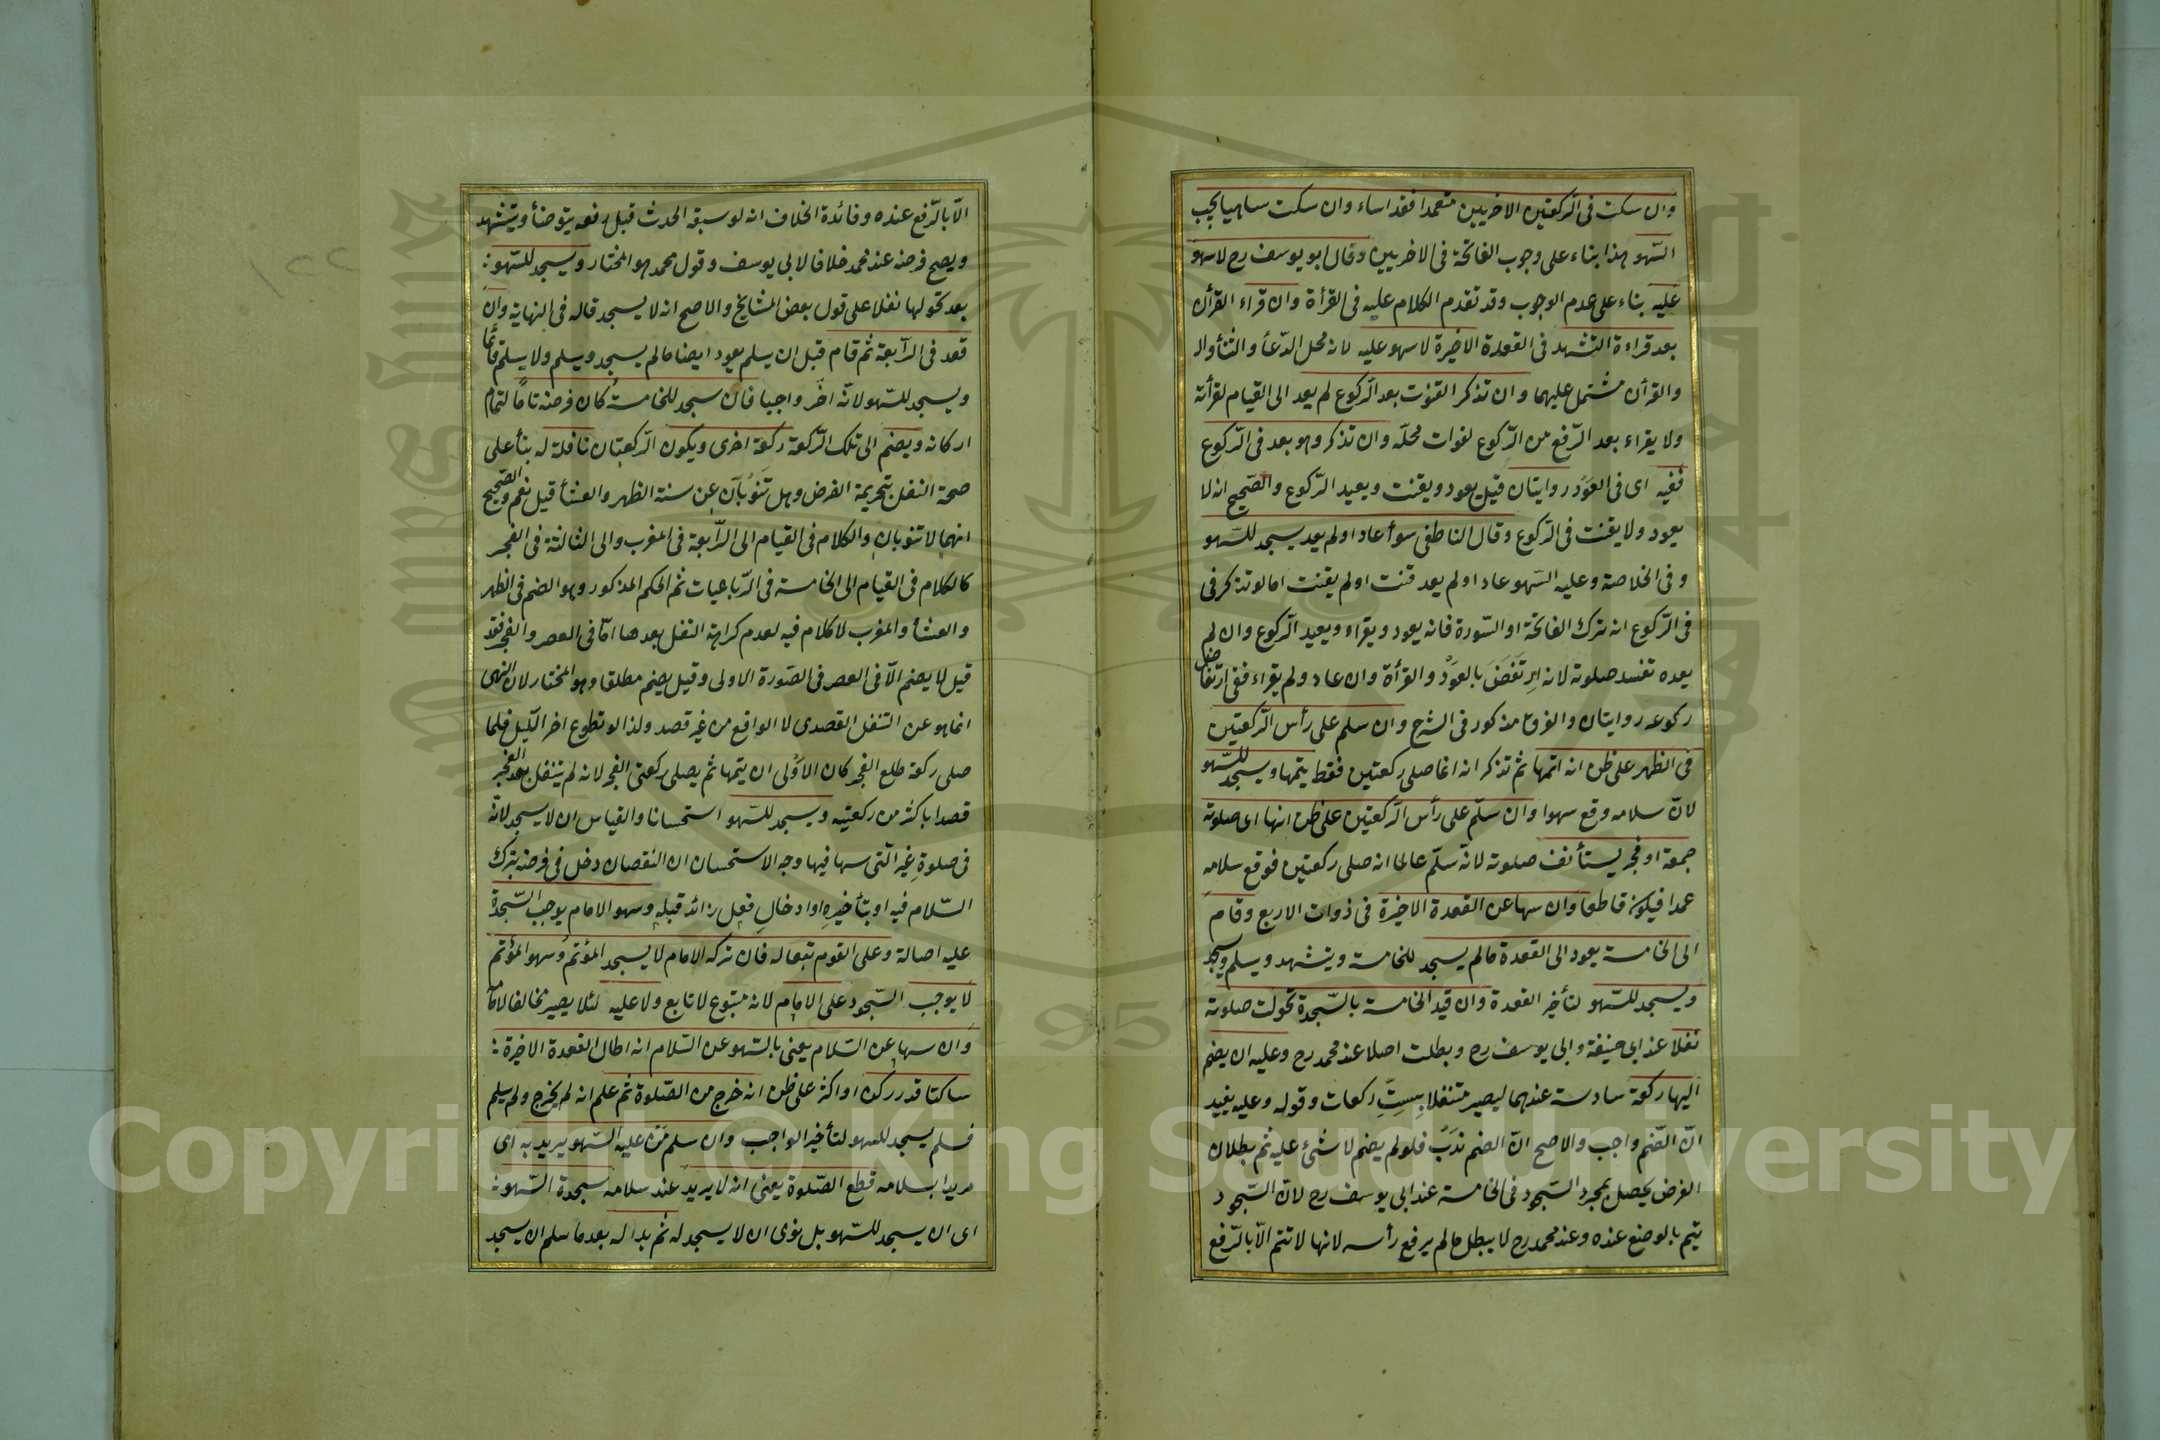 وان سكت فى الركعتين الاخريين متعمدا فقد اساء وان سكت ساهيا يجب
السّهو هذا بناء على وجوب الفاتحة فى الاخريين وقال ابو يوسف رح لا سهو
عليه بناء على عدم الوجوب وقد تقدم الكلام عليه فى القرأة وان قراء القرآن
بعد قراءة التشهد فى القعدة الاخيرة لا سهو عليه لانه محل الدّعأ والثنأ وال
والقرآن مشتمل عليهما وان تذكر القنوت بعد الرّكوع لم يعد الى القيام لقرأته
ولا يقراء بعد الرّفع من الرّكوع لفوات محلّه وان تذكر وهو بعد فى الرّكوع
ففيه اى فى العَوْد روايتان قيل يعود ويقنت ويعيد الرّكوع والصّحيح انه لا
يعود ولا يقنت فى الرّكوع وقال الناطفى سوأ عاد او لم يعد يسجد للسّهو
وفى الخلاصة وعليه السّهو عاد او لم يعد قنت او لم يقنت اما لو تذكر فى
فى الرّكوع انه ترك الفاتحة او السّورة فانه يعود ويقراء ويعيد الرّكوع وان لم
يعده تفسد صلوته لانه ارتَفَضَ بالعَوْد والقرأة وان عاد ولم يقراء ففى ارتفاض
ركوعه روايتان والفرق مذكور فى الشرح وان سلم على رأس الرّكعتين
فى الظهر على ظن انه اتمها ثم تذكر انه انما صلى ركعتين فقط يتمها ويسجد للسّهو
لانّ سلامه وقع سهوا وان سلّم على رأس الرّكعتين على ظن انها اى صلوته
جمعة او فجر يستأنف صلوته لانّه سلّم عالما انه صلى ركعتين فوقع سلامه
عمدا فيكون قاطعا وان سها عن القعدة الاخيرة فى ذوات الاربع وقام
الى الخامسة يعود الى القعدة ما لم يسجد للخامسة ويتشهد ويسلم ويسجد
ويسجد للسّهو لتأخير القعدة وان قيد الخامسة بالسّجدة تحولت صلوته
نفلا عند ابى حنيفة وابى يوسف رح وبطلت اصلا عند محمد رح وعليه ان يضم
اليها ركعة سادسة عندهما ليصير متنفلا بِسِتِّ ركعات وقوله وعليه يفيد
انّ الضّم واجب والاصح انّ الضم ندبٌ فلو لم يضم لا شئ عليه ثم بطلان
الفرض يحصل بمجرد السّجود فى الخامسة عند ابى يوسف رح لانّ السّجود
يتم بالوضع عنده وعند محمد رح لا يبطل ما لم يرفع رأسه لانها لا تتم الّا بالرّفع
الّا بالرّفع عنده وفائدة الخلاف انه لو سبقه الحدث قبل رفعه يتوضأ ويتشهد
ويصح فرضه عند محمد خلافا لابى يوسف وقول محمد هو المختار ويسجد للسّهو
بعد تحولها نفلا على قول بعض المشايخ والاصح انه لا يسجد قاله فى النهاية وان
قعد فى الرّابعة ثم قام قبل ان يسلم يعود ايضا ما لم يسجد ويسلم ولا يسلم قائما
ويسجد للسّهو لانّه اخّر واجبا فان سجد للخامسة كان فرضه تاما لتمام
اركانه ويضم الى تلك الرّكعة ركعة اخرى ويكون الرّكعتان نافلة له بنأ على
صحة النفل بتحريمة الفرض وهل تنوبان عن سنة الظهر والعشأ قيل نعم والصّحيح
انهما لا تنوبان والكلام فى القيام الى الرّابعة فى المغرب والى الثالثة فى الفجر
كالكلام فى القيام الى الخامسة فى الرّباعيات ثم الحكم المذكور وهو الضم فى الظهر
والعشأ والمغرب لا كلام فيه لعدم كراهة النفل بعدها امّا فى العصر والفجر فقد
قيل لا يضم الّا فى العصر فى الصّورة الاولى وقيل يضم مطلقا وهو المختار لان النهى
انما هو عن التنفل القصدى لا الواقع من غير قصد ولذا لو تطوع اخر اللّيل فلما
صلى ركعة طلع الفجر كان الاَوْلى ان يتمها ثم يصلى ركعتى الفجر لانه لم يتنفل بعد الفجر
قصدا باكثر من ركعتيه ويسجد للسّهو استحسانا والقياس ان لا يسجد لانّه
فى صلوةِ غير الّتى سها فيها وجه الاستحسان ان النّقصان دخل فى فرضه بترك
السّلام فيه او بتأخيره او ادخالِ فعلٍ زائد قبله وسهو الامام يوجب السّجدة
عليه اصالة وعلى القوم تبعا له فان تركه الامام لا يسجد المؤتم وسهو المؤتم
لا يوجب السّجود على الامام لانه متبوع لا تابع ولا عليه لئلا يصير مخالفا لامامه
وان سها عن السّلام يعنى بالسّهو عن السّلام انه اطال القعدة الاخيرة
ساكتا قدر ركن او اكثر على ظن انه خرج من الصّلوة ثم علم انه لم يخرج ولم يسلم
فسلم يسجد للسهو لتأخير الواجب وان سلم مَن عليه السّهو يريد به اى
مريدا بسلامه قطع الصّلوة يعنى انه لا يريد عند سلامه سجدة السّهو
اى ان يسجد للسّهو بل نوى ان لا يسجد له ثم بدا له بعد ما سلم ان يسجد
Copyright © King Saud University